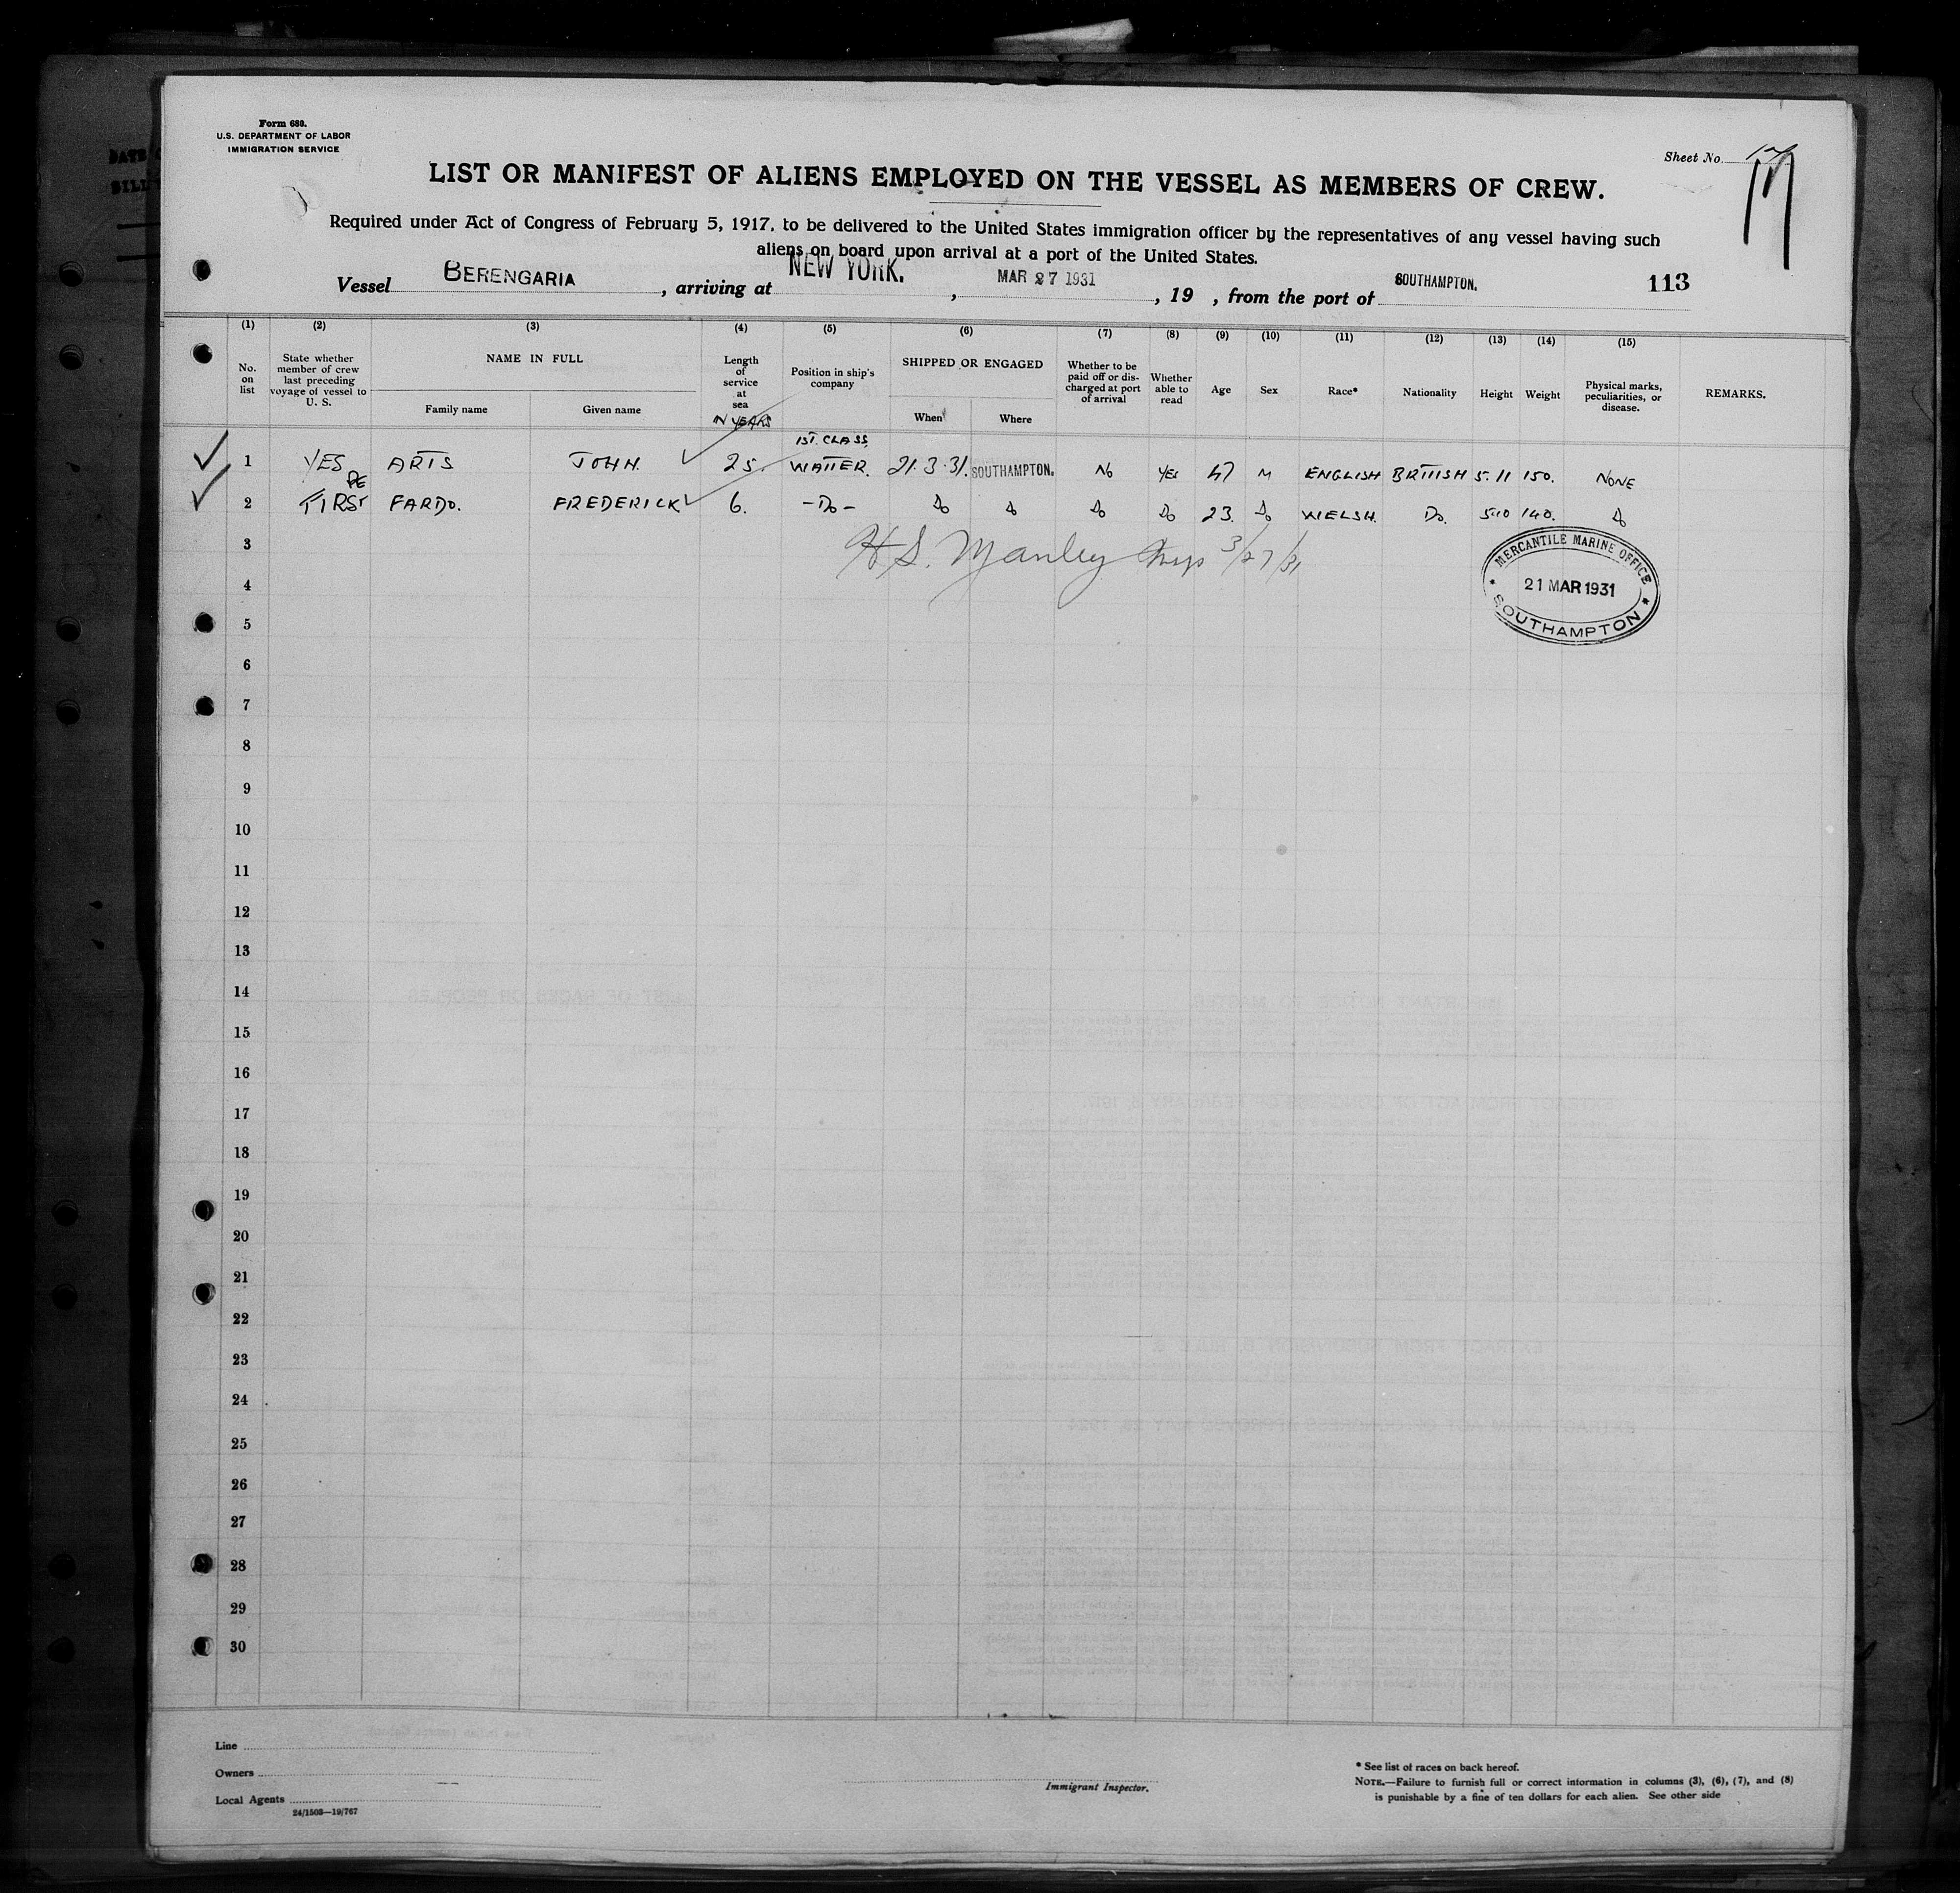 Form 680.
U.S. DEPARTMENT OF LABOR
IMMIGRATION SERVICE
Sheet No.
LIST OR MANIFEST OF ALIENS EMPLOYED ON THE VESSEL AS MEMBERS OF CREW.
Required under Act of Congress of February 5, 1917, to be delivered to the United States immigration officer by the representatives of any vessel having such
aliens on board upon arrival at a port of the United States.
Vessel BERENGARIA, arriving at NEW YORK., MAR 27 1931, 19 , from the port of SOUTHAMPTON. 113
(1) (2) (3) (4) (5) (6) (7) (8) (9) (10) (11) (12) (13) (14) (15)
No. on list
State whether member of crew last preceding voyage of vessel to U. S.
NAME IN FULL
Family name Given name
Length of service at sea IN YEARS
Position in ship's company
SHIPPED OR ENGAGED
When Where
Whether to be paid off or discharged at port of arrival
Whether able to read
Age
Sex
Race*
Nationality
Height
Weight
Physical marks, peculiarities, or disease.
REMARKS.
1ST. CLASS
1 YES ARTS JOHN. 25. WAITER. 21.3.31. SOUTHAMPTON. NO YES 47 M ENGLISH BRITISH 5.11 150. NONE
RE
2 FIRST FARDO. FREDERICK 6. -DO- DO DO DO DO 23. DO WELSH. DO. 5.10 140. DO
3 H.S. Manley Insp 3/27/31
MERCANTILE MARINE OFFICE
21 MAR 1931
SOUTHAMPTON
4
5
6
7
8
9
10
11
12
13
14
15
16
17
18
19
20
21
22
23
24
25
26
27
28
29
30
Line
Owners
Local Agents
24/1503—19/767
Immigrant Inspector.
* See list of races on back hereof.
NOTE.—Failure to furnish full or correct information in columns (3), (6), (7), and (8)
is punishable by a fine of ten dollars for each alien. See other side